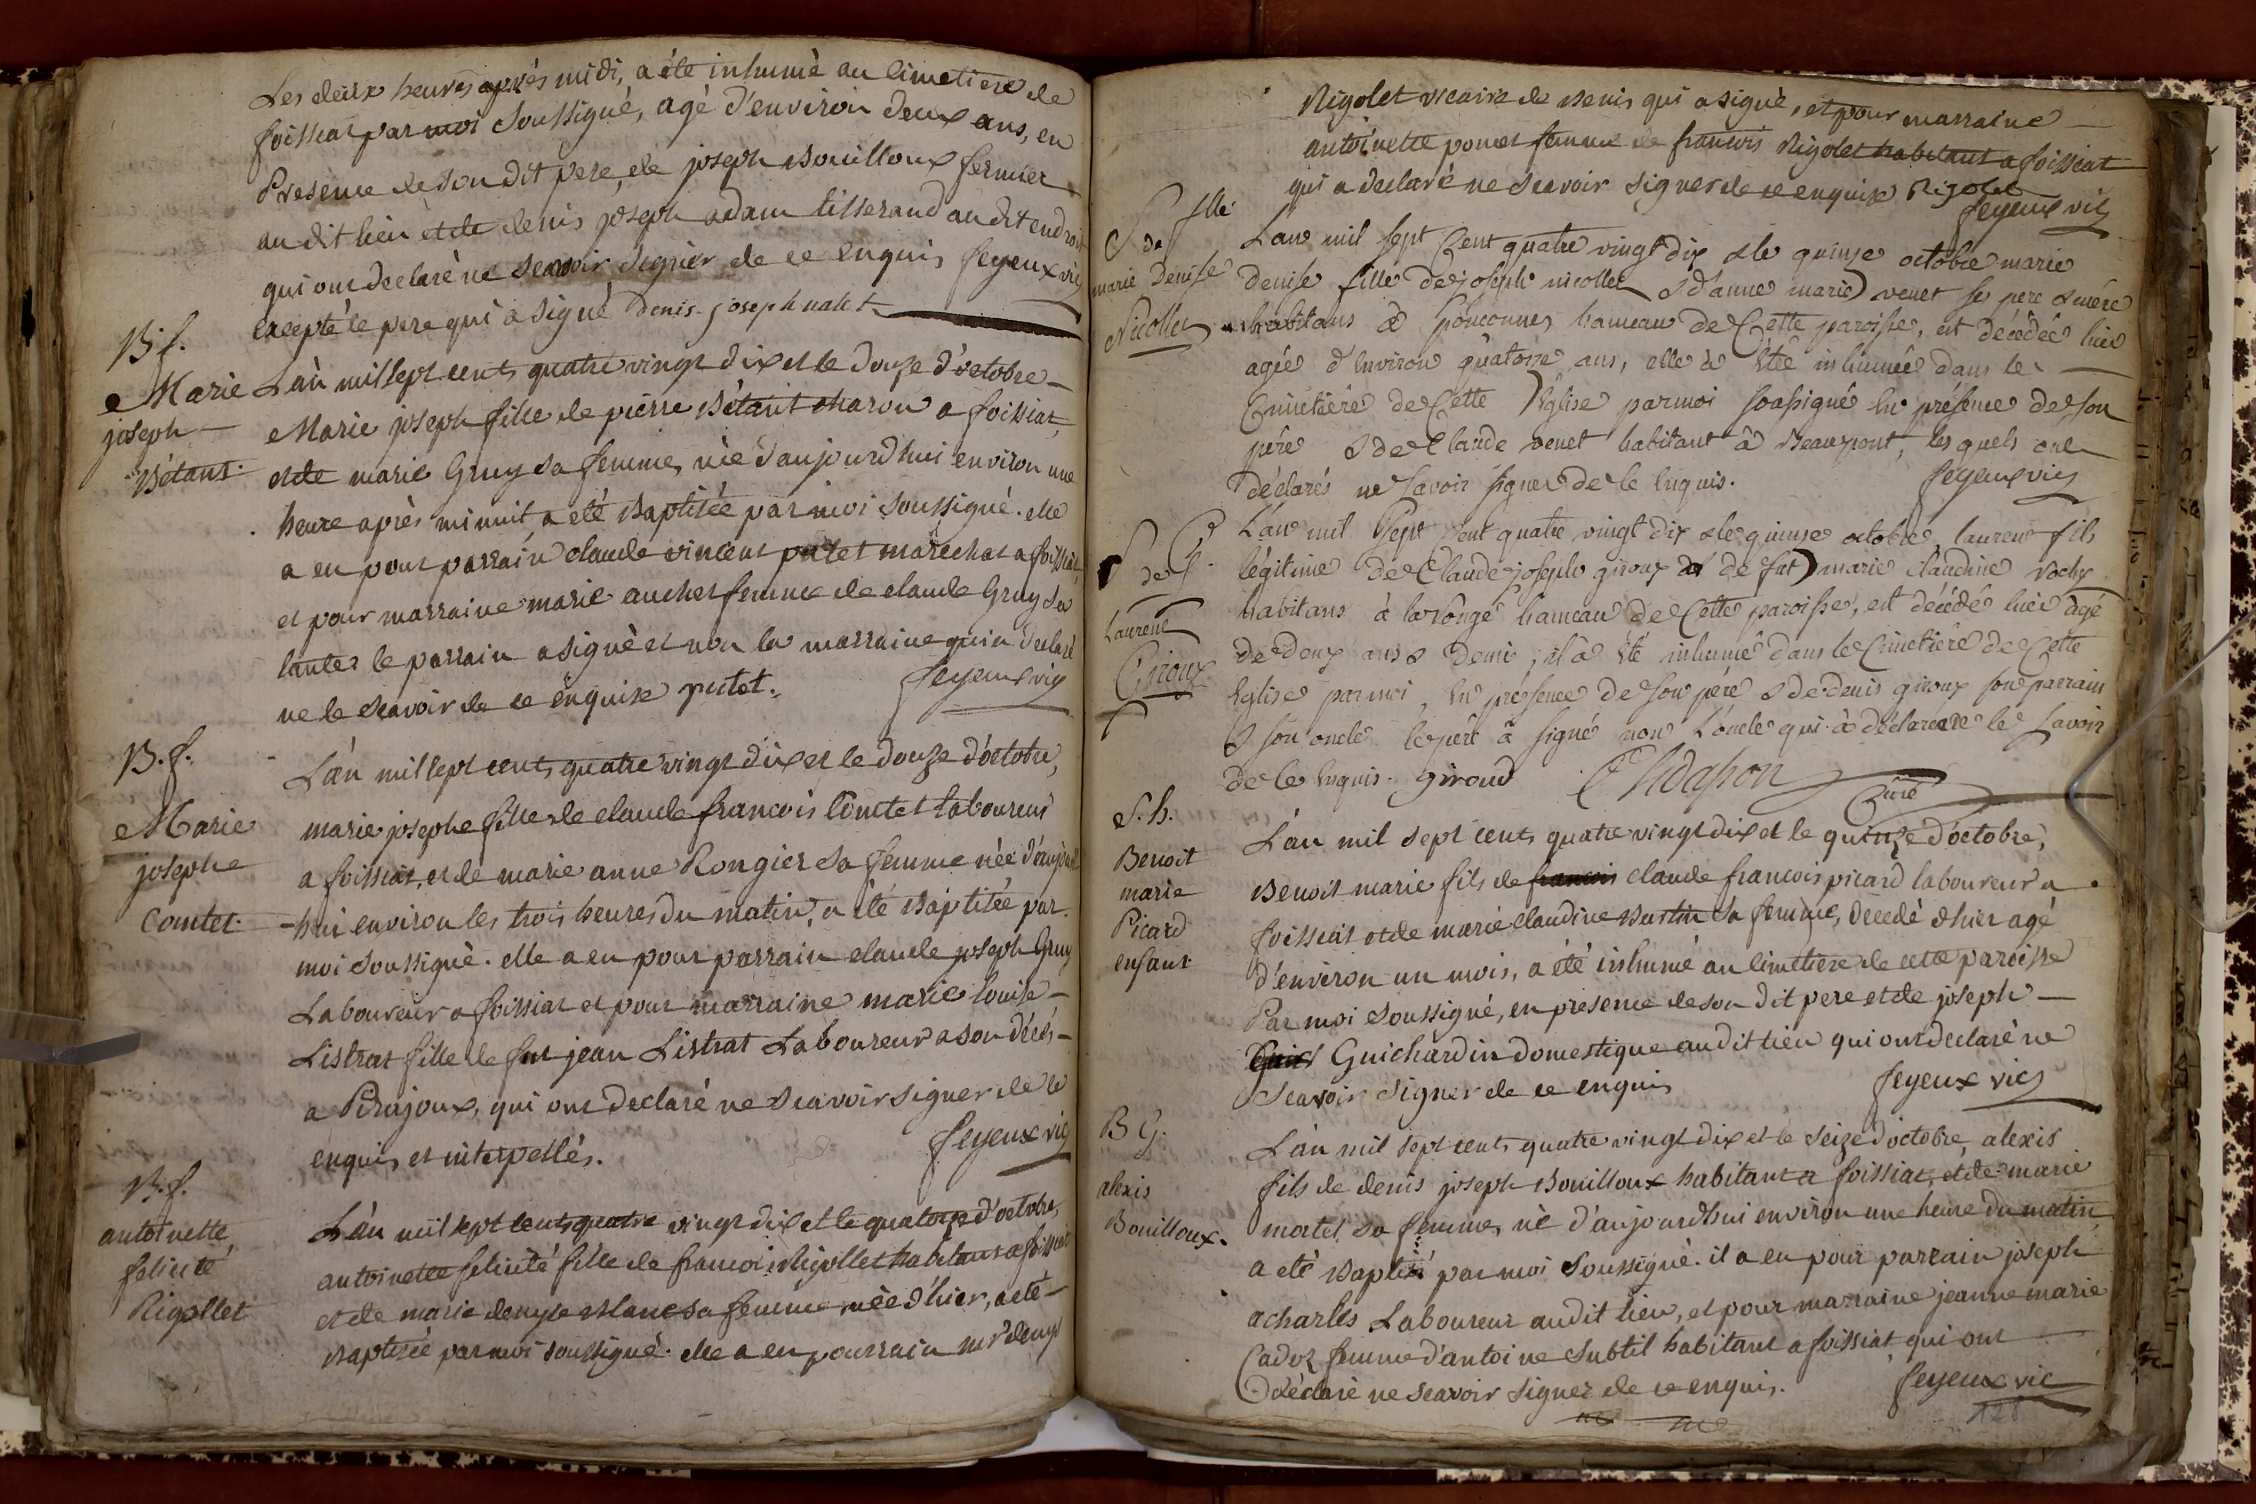 Les deux heures après midi, a été inhumè au cimetiere de
foissiat par moi soussigné, agé d'environ deux ans, en
Presence de son dit pere, de joseph Bouilloux fermier
au dit lieu et de denis joseph adam tisserand au dit endroit
qui ont declaré ne scavoir signer de ce enquis feyeux vic
excepté le pere qui a signé Denis joseph
B. f.
Marie
joseph
Bétant.
L'an mil sept cents quatre vingt dix et le douze d'octobre
Marie joseph fille de pierre Bétant charon a foissiat,
et de marie Gruy sa femme, née d'aujourd'hui environ une
heure après minuit a eté Baptisée par moi soussigné. elle
a eu pour parrain claude vincent putet marechat a foissiat,
et pour marraine marie auchet femme de claude Gruy sa
tante, le parrain a signé et non la marraine qui a declaré
ne le scavoir de ce enquise putet. feyeux vic
B. f.
Marie
josephe
Comtet.
L'an mil sept cents quatre vingt dix et le douze d'octobre,
marie josephe fille de claude francois Comtet laboureur
a foissiat, et de marie anne Rongier sa femme née d'aujourd
hui environ les trois heures du matin, a été Baptisée par
moi soussigné. elle a eu pour parrain claude joseph Gruy
Laboureur a foissiat et pour marraine marie louise
Listrat fille de fut jean Listrat Laboureur a son décés
a Pirajoux, qui ont declaré ne scavoir signer de ce
enquis et interpellés. feyeux vic
B. f.
antoinette
felicité
Rigollet
L'an mil sept cents quatre vingt dix et le quatorze d'octobre,
antoinette felicité fille de francois Rigollet habitant a foissiat
et de marie denyse Blanc sa femme née d'hier, a eté
Baptisée par moi soussigné. elle a eu pour parrain mr denys
Rigolet vicaire de qui a signé, et pour marraine
antoinette poncet femme de francois Rigolet habitant a foissiat
qui a declaré ne scavoir signer de ce enquise Rigolet
feyeux vic
S. fille
de
marie denise
Nicollet
L'an mil sept Cent quatre vingt dix & le quinze octobre marie
denise fille de joseph nicollet & d'anne marie venet ses pere & mére
habitans à ponconnes hameau de Cette paroisse, est décédée hier
agée d'environ quatorze ans, elle à été inhumée dans le
Cimetiére de Cette Eglise par moi soussigné En présence de son
pére & de Claude venet habitant à Beaupont, les quels ont
déclarés ne savoir signer de Ce Enquis. feyeux vic
S. de G.
Laurent
Giroux
L'an mil Sept Cent quatre vingt dix & le quinze octobre laurent fils
légitime de Claude joseph giroux & de fut marie claudine Rochy
habitans à la Ronge hameau de Cette paroisse, est décédé hier agé
de deux ans & demi, il à été inhumé dans le Cimetiére de Cette
Eglise par moi, En présence de son pére & de denis giroux son parrain
& son oncle le pére à signé non L'oncle qui à déclaré ne le savoir
de Ce Enquis. giroud Chdasson
Curé
S. h.
Benoit
marie
Picard
enfant
L'an mil sept cents quatre vingt dix et le quinze d'octobre,
Benoit marie fils de francois claude francois picard laboureur a
foissiat et de marie claudine Bustin sa femme, decedé d'hier agé
d'environ un mois, a été inhumé au cimetiere de cette paroisse
Par moi soussigné, en presence de son dit pere et de joseph
Guich Guichardin domestique au dit lieu qui ont declaré ne
scavoir signer de ce enquis feyeux vic
B G.
alexis
Bouilloux.
L'an mil sept cents quatre vingt dix et le seize d'octobre, alexis
fils de denis joseph Bouilloux habitant a foissiat, et de marie
mortel sa femme, né d'aujourd'hui environ une heure du matin,
a eté Baptisé par moi soussigné. il a eu pour parrain joseph
acharles Laboureur au dit lieu, et pour marraine jeanne marie
Cadoz femme d'antoine subtil habitant a foissiat qui ont
declaré ne scavoir signer de ce enquis. feyeux vic
128